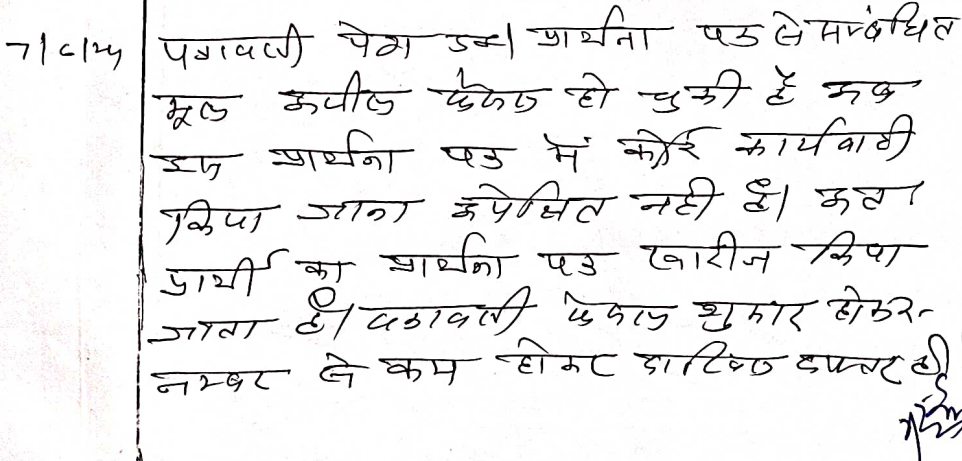 7/6/24 पत्रावली पेश हुई। प्रार्थना पत्र से सम्बंधित
मूल अपील फैसल हो चुकी है अब
इस प्रार्थना पत्र में कोई कार्यवाही
किया जाना अपेक्षित नही है। अतः
प्रार्थी का प्रार्थना पत्र खारीज किया
जाता है। पत्रावली फैसल शुमार होकर
नम्बर से कम होकर दाखिल दफ्तर हो